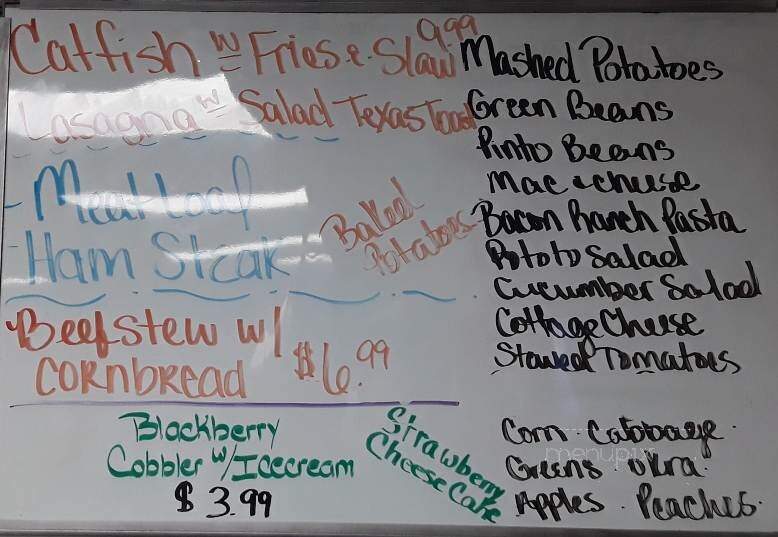 Catfish w Fries & Slaw 9.99
Lasagna w Salad Texas Toast
- Meat Loaf
- Ham Steak
Baked
Potatoes
Beef Stew w/
CORNBREAD $6.99
Blackberry
Cobbler w/ Icecream
$3.99
Strawberry
Cheese Cake
Mashed Potatoes
Green Beans
Pinto Beans
Mac & cheese
Bacon Ranch Pasta
Potato Salad
Cucumber Salad
Cottage Cheese
Stewed Tomatoes
Corn · Cabbage ·
Greens · okra ·
Apples · Peaches ·
menupix